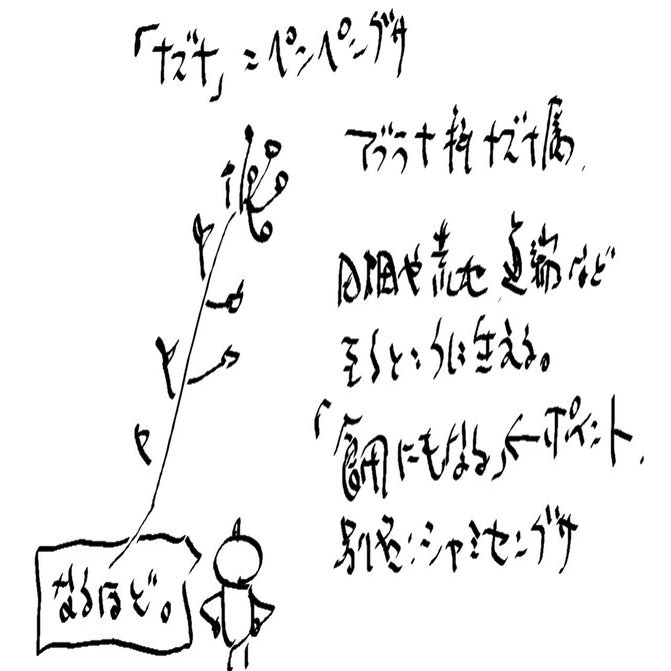 「ナズナ」=ペンペングサ
アブラナ科ナズナ属
田畑や荒地 道端など
至るところに生える。
「食用にもなる」←ポイント
別名:シャミセングサ
なるほど。